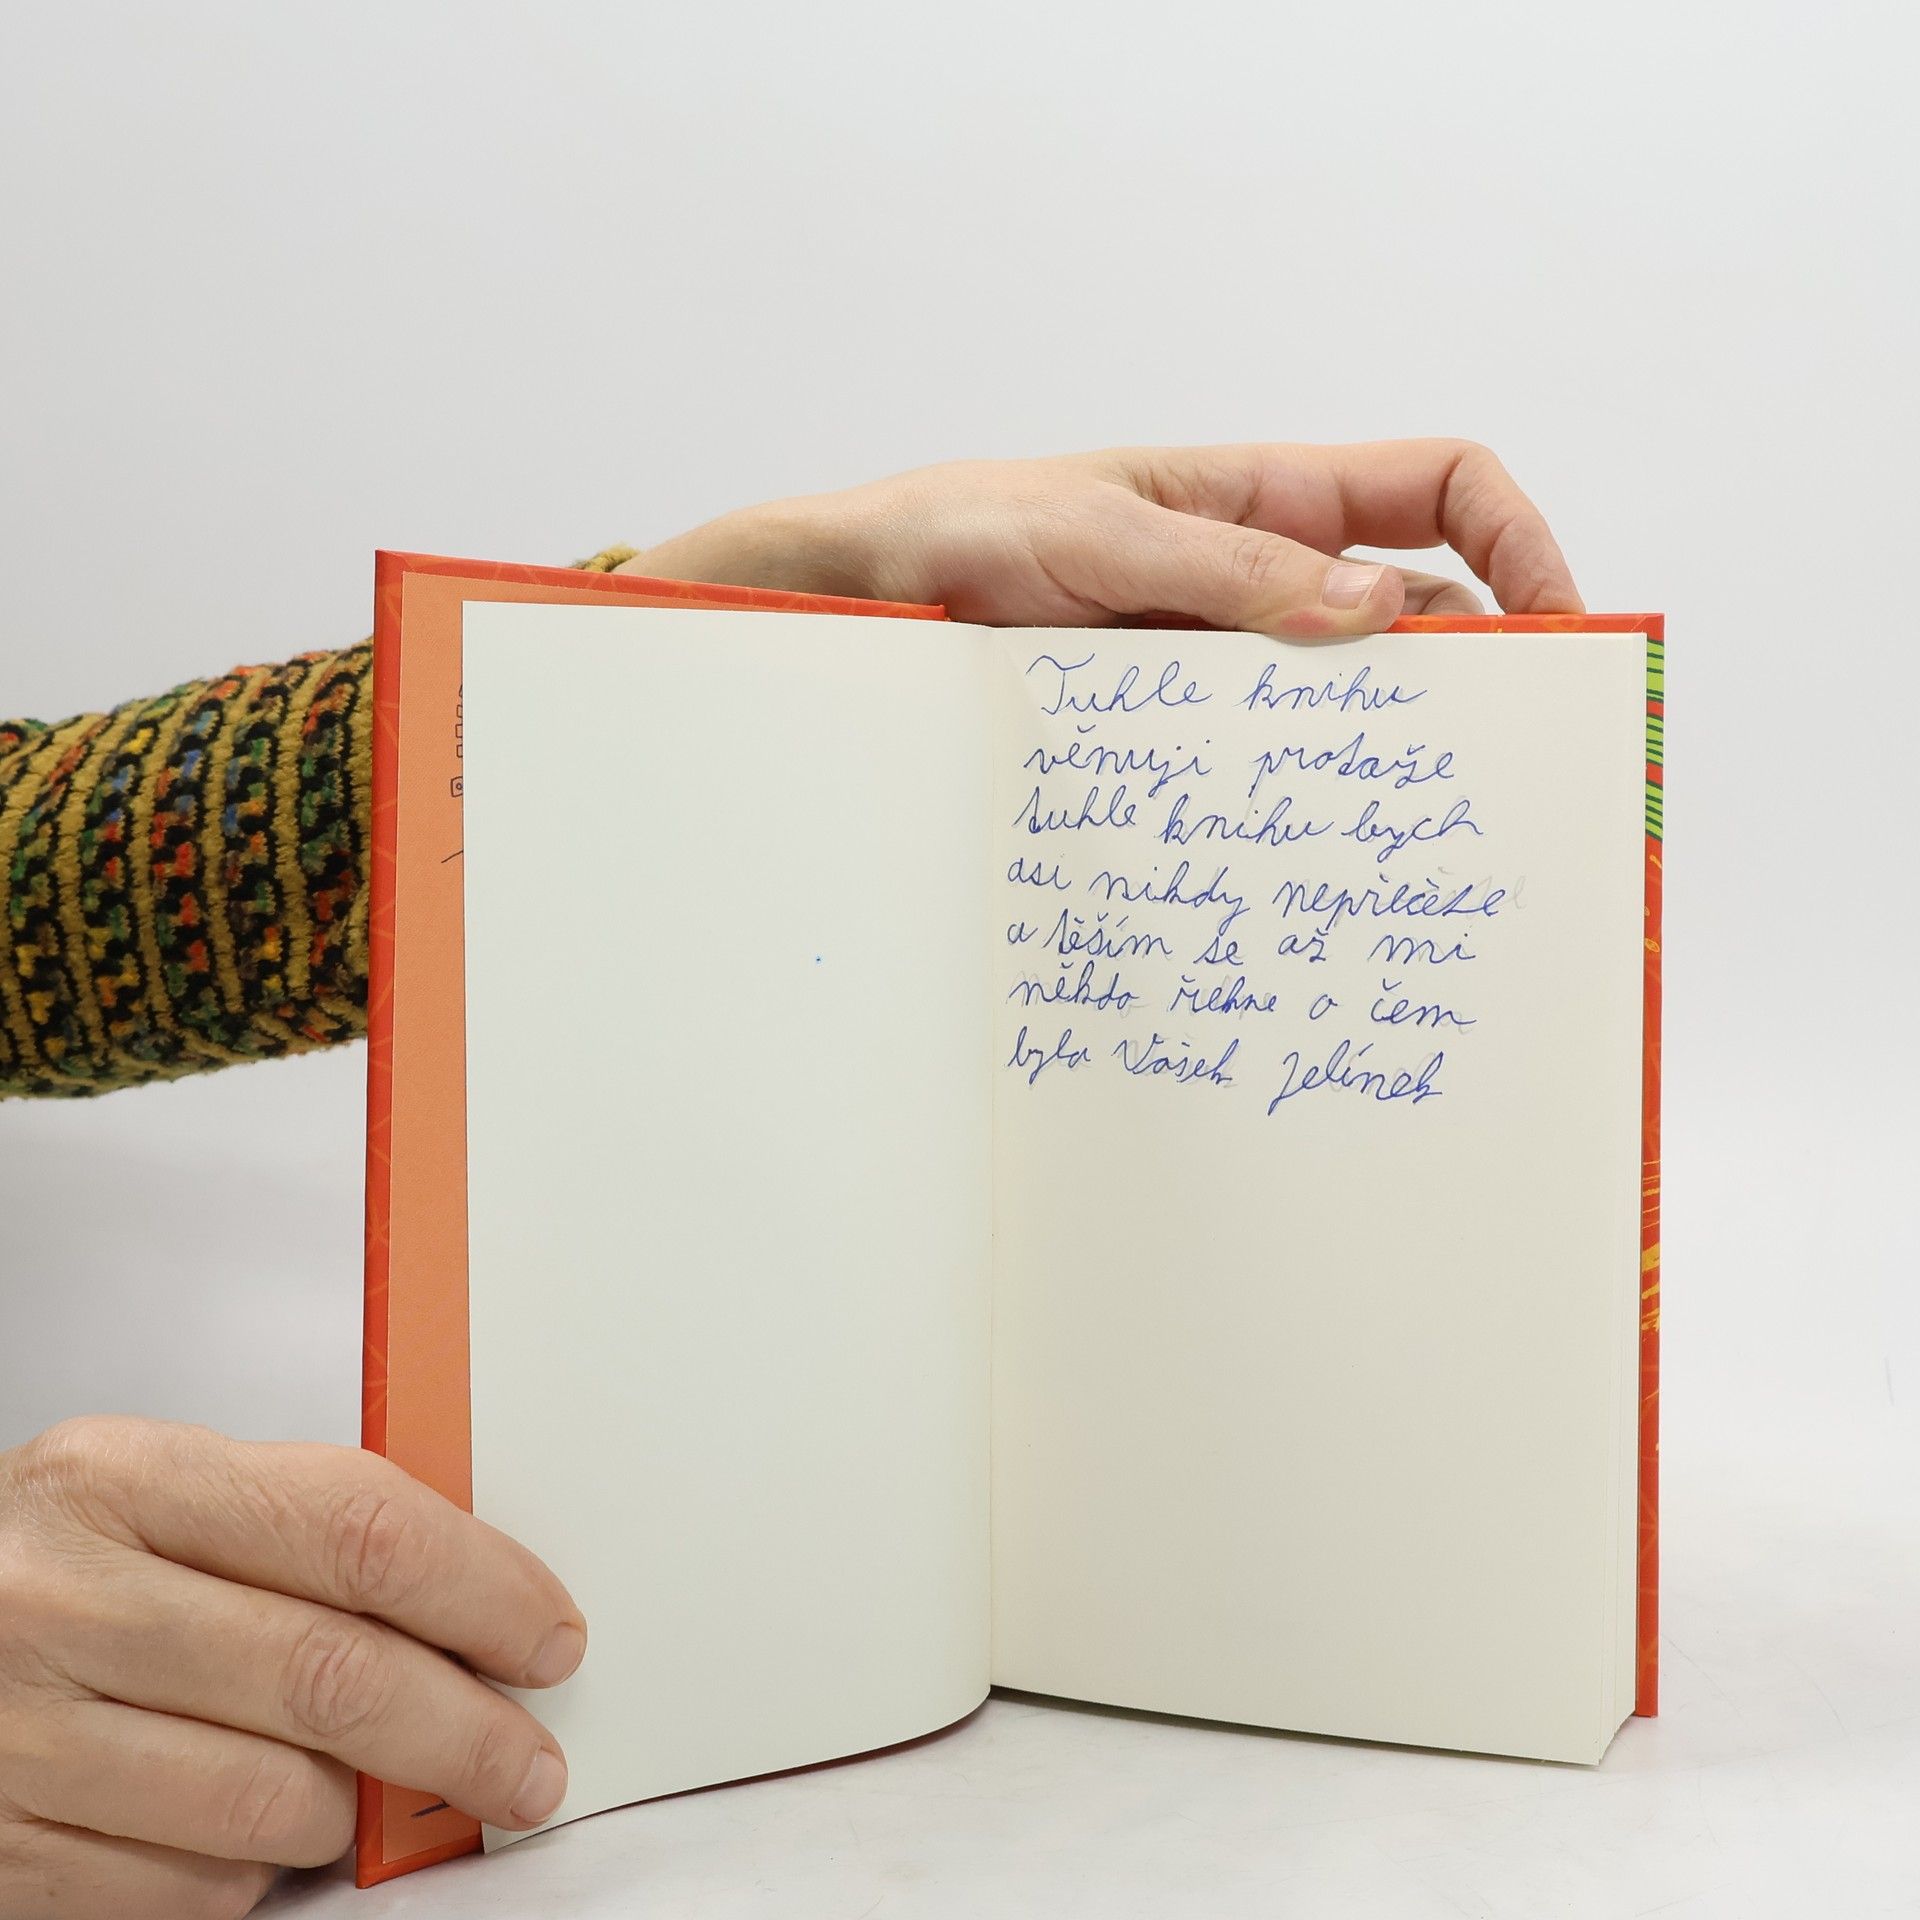 Tuhle knihu
věnuji protože
tuhle knihu bych
asi nikdy nepřečetl
a těším se až mi
někdo řekne o čem
byla Vašek Jelínek